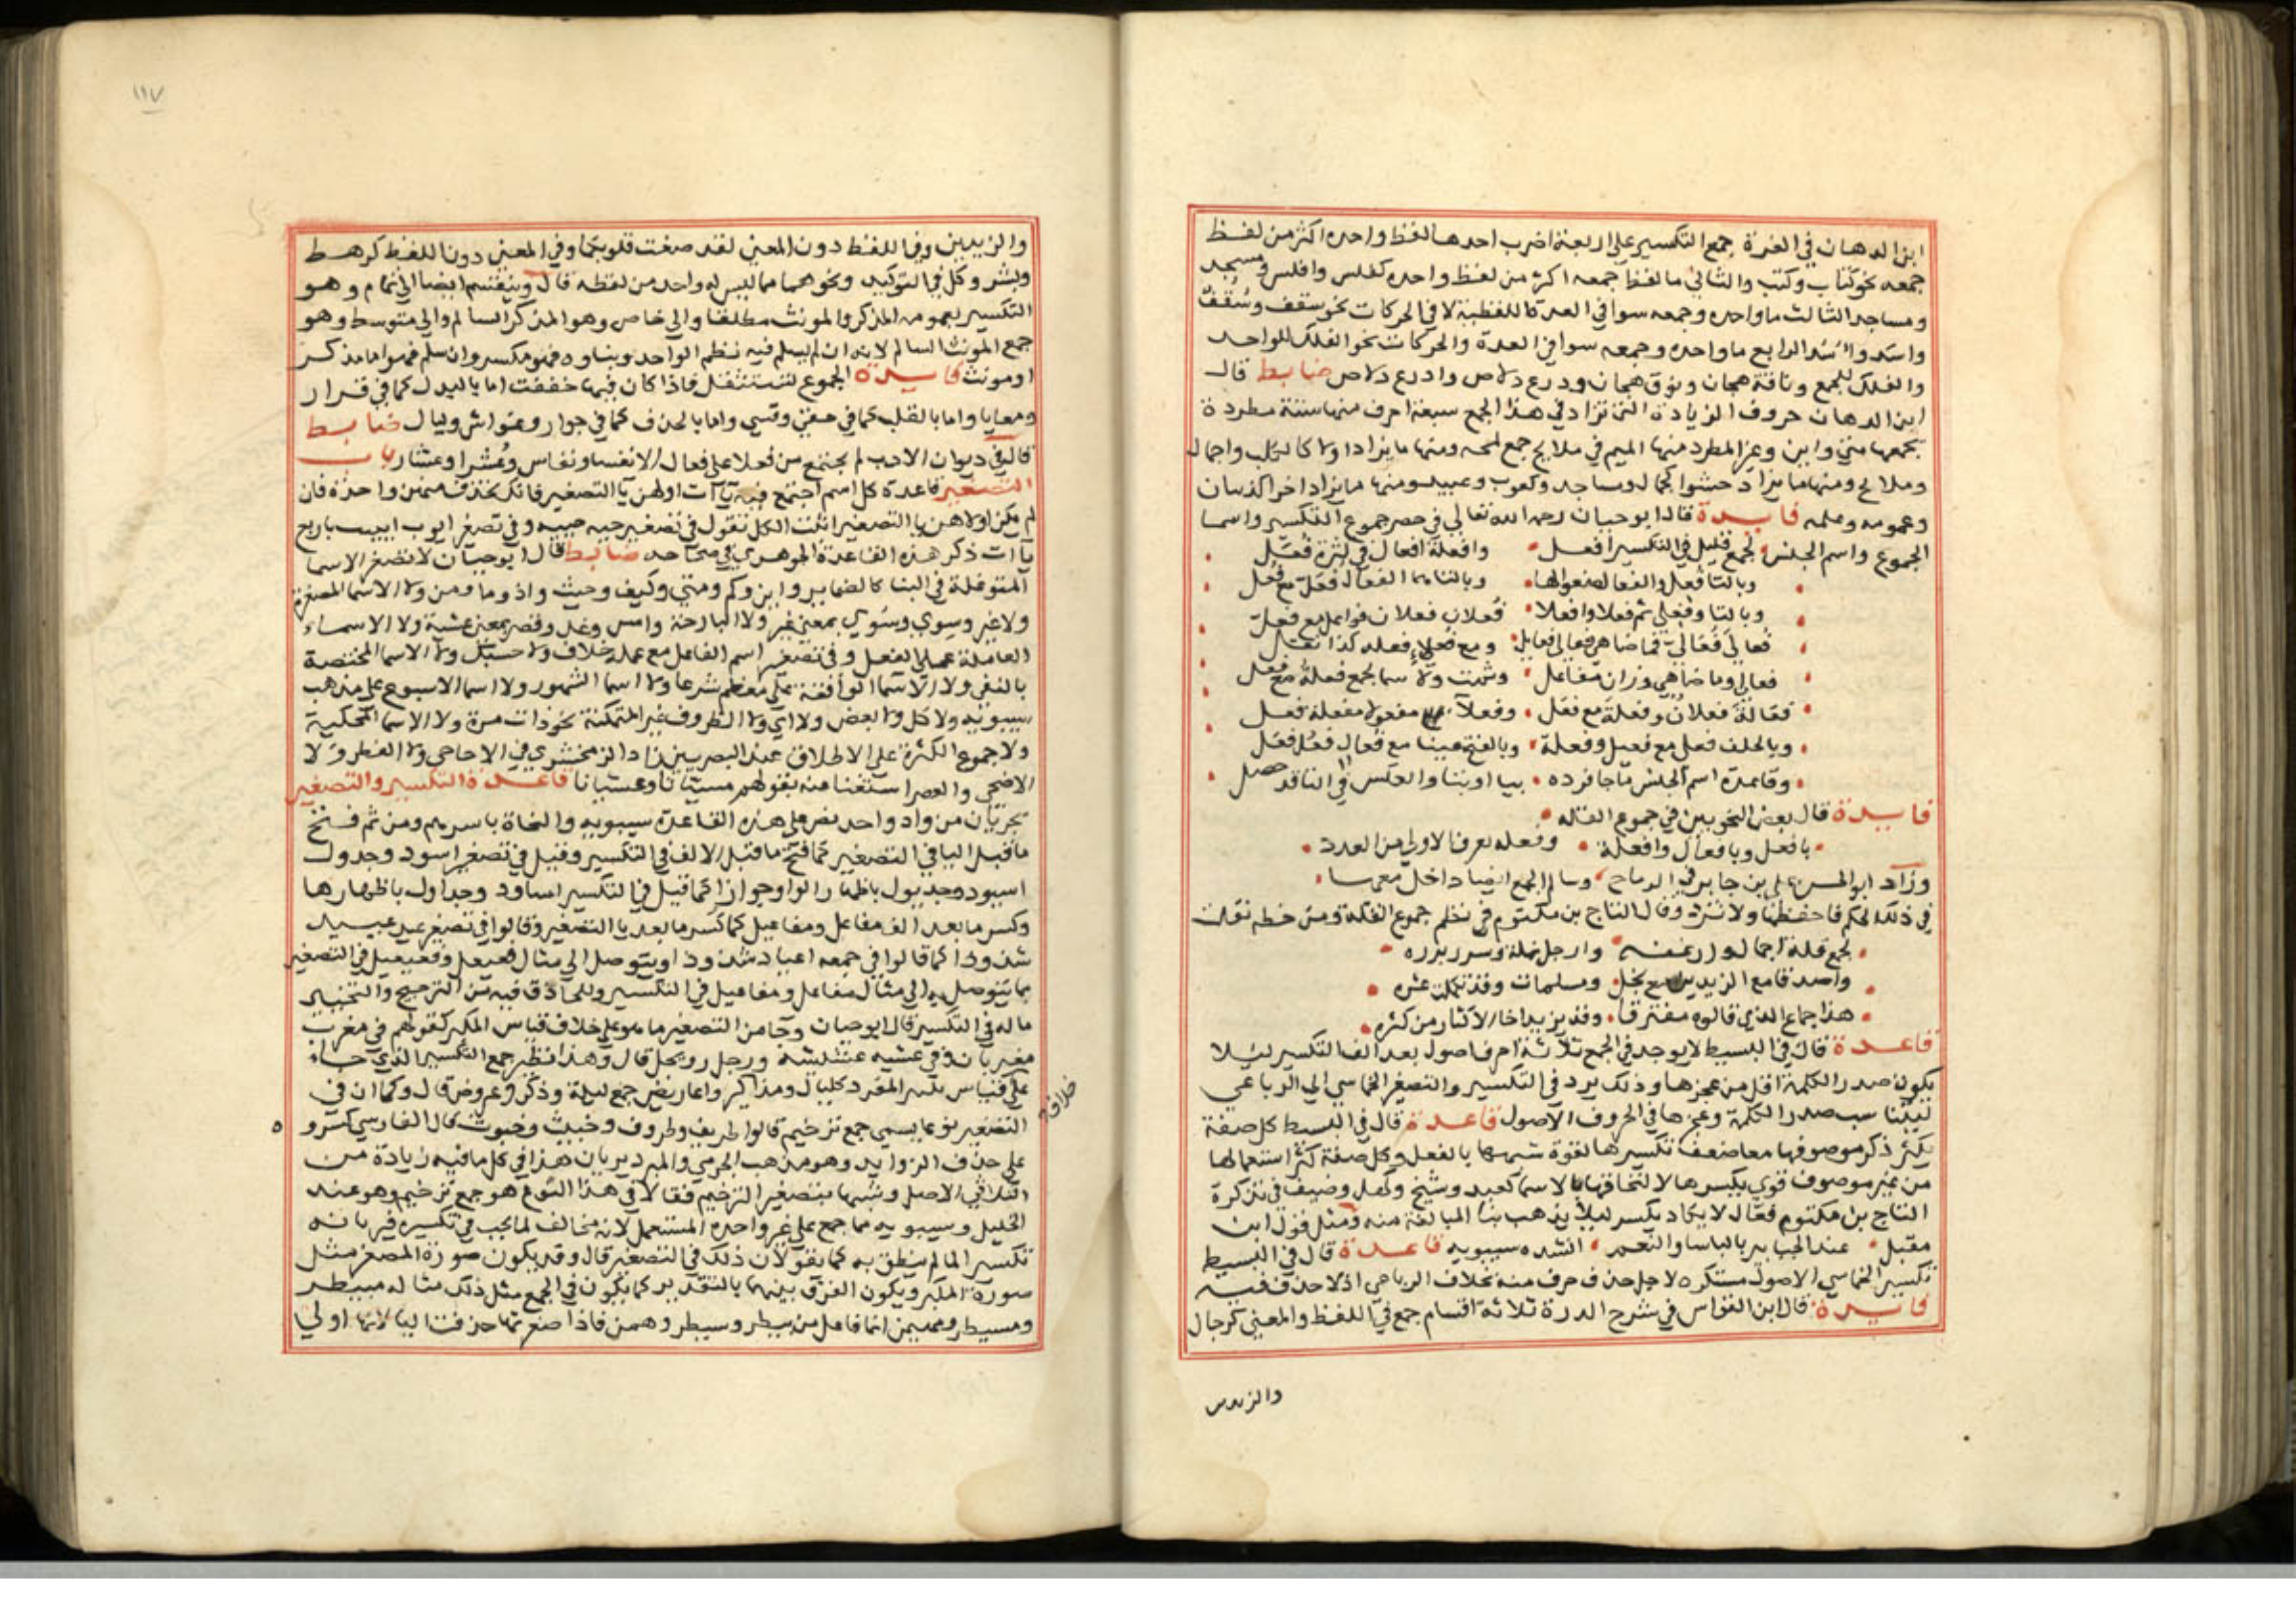 ابن الدهان في الغرة جمع التكسير على اربعة اضرب احدها لفظ واحده اكثر من لفظ
جمعه نحو كتاب وكتب والثاني ما لفظ جمعه اكثر من لفظ واحده كفلس وافلس ومسجد
ومساجد الثالث ما واحده وجمعه سوا في العدة اللفظية لا في الحركات نحو سقف وسُقُف
واسَد واُسْد الرابع ما واحده وجمعه سوا في العدة والحركات نحو الفلك للواحد
والفلك للجمع وناقة هجان ونوق هجان ودرع دلاص وادرع دلاص ضابط قال
ابن الدهان حروف الزيادة التي تزاد في هذا الجمع سبعة احرف منها ستة مطردة
يجمعها متي وابن وغير المطرد منها الميم في ملامح جمع لمحه ومنها ما يزاد اولا كاكلب واجمال
وملامح ومنها ما يزاد حشوا كجمال ومساجد وكعوب وعبيد ومنها ما يزاد اخرا كذبان
وعمومه وصلمه فايدة قال ابو حيان رحمه الله تعالى في حصر جموع التكسير واسما
الجموع واسم الجنس لجمع قليل في التكسير افعل وافعلة افعال في كثرة فُعَّل
وبالتا فُعل والفعال وبالتا هما الفعال فُعَل مع فُعُل
وبالتا وفعلي ثم فعلا وافعلا فُعلان فعلان فواعل مع فعل
فُعالى فَعَالى ما ضاهي فعالى فعايل ومع فُعلا فعله كذا نقل
فعالي وما ضاهي وزان مفاعل وشذت ولا سما لجمع فعلة مع فعل
فعَالةُ فعلان وفعلة مع فعَل وفعلا مفعولا مفعلة فعل
وبالخلف فعل مع فعيل وفعلة وبالفتح عينا مع فُعال فُعُل فعَل
وقاعدة اسم الجنس ما جا فرده بيا او بتا والعكس في التا قد حصل
فايدة قال بعض النحويين في جموع القلة
بافعل وبافعال وافعلة وفعله يعرف الادنى من العدد
وزاد ابو الحسن علي بن جابر الدباج وسالم الجمع ايضا داخل معها
في ذلك الحكم فاحفظها ولا تزد وقال التاج بن مكتوم في نظم جموع القلة ومن خطه نقلت
لجمع قلة اجمال وارغفه وارجل غلة وسرر برره
واصدقا مع الزيدين مع نحل ومسلمات وقد تكملت عشره
هذا جماع الذي قالوه مفترقا وقد يزيد اخا الاكثار من كثره
قاعدة قال في البسيط لا يوجد في الجمع ثلاثة احرف اصول بعد الف التكسير ليلا
يكون صدر الكلمة اقل من عجزها وذلك يرد في التكسير والتصغير الخماسي الي الرباعي
ليتناسب صدر الكلمة وعجزها في الحروف الاصول قاعدة قال في البسيط كل صفة
يكثر ذكر موصوفها معها ضعف تكسيرها لقوة شبهها بالفعل وكل صفة كثر استعمالها
من غير موصوف قوي تكسيرها لالتحاقها بالاسما كعبد وشيخ وكهل وضيف في تذكرة
التاج بن مكتوم فعّال لا يكاد يكسر ليلا يذهب بنا المبالغة منه ومثل قول ابن
مقبل عند الجبابير بالباسا والنعم انشده سيبويه قاعدة قال في البسيط
تكسير الخماسي الاصول مستكره لاجل حذف حرف منه بخلاف الرباعي اذ لا حذف فيه
فايدة قال ابن القواس في شرح الدرة ثلاثة اقسام جمع في اللفظ والمعنى كرجال
والزيدين
١١٧
والزيدين وفي اللفظ دون المعني لقد صغت قلوبكما وفي المعني دون اللفظ كرهط
وبشر وكل في التوكيد ونحوهما مما ليس له واحد من لفظه قال وينقسم ايضا الي تمام وهو
التكسير لعمومه المذكر والمونث مطلقا والي خاص وهو المذكر السالم والي متوسط وهو
جمع المونث السالم لانه ان لم يسلم فيه نظم الواحد وبناوه فهو مكسر وان سلم فهو اما مذكر
او مونث فايدة الجموع تستثقل فاذا كان فيها خففت اما بالبدل كما في
ومعايا واما بالقلب كما في حقي وقسي واما بالحذف كما في جوار وغواش وليال ضابط
قال في ديوان الادب لم يجتمع من فعلا علي فعال الا نفسا ونفاس وعُشرا وعشار باب
التصغير قاعدة كل اسم اجتمع فيه يآت اولهن يا التصغير فانك تحذف منهن واحدة فان
لم يكن اولاهن يا التصغير اثبت الكل تقول في تصغير حيه حييه وفي تصغير ايوب اييب باربع
يآات ذكر هذه القاعدة الجوهري في صحاحه ضابط قال ابو حيان لا تصغر الاسما
المتوغلة في البنا كالضماير واين وكم ومتي وكيف وحيث واذ وما ومن ولا الاسما المصغرة
ولا غير وسِوي وسُوي بمعني غير ولا البارحة وامس وغد وقصر بمعني عشية ولا الاسماء
العاملة عمل الفعل وفي تصغير اسم الفاعل مع عمله خلاف ولا حسبك ولا الاسما المختصة
بالنفي ولا الاسما الواقعة على معظم شرعا ولا اسما الشهور ولا اسما الاسبوع على مذهب
سيبويه ولا كل ولا بعض ولا اي ولا الظروف غير المتمكنة نحو ذات مرة ولا الاسما المحكية
ولا جموع الكثرة علي الاطلاق عند البصريين زاد الزمخشري في الاحاجي ولا الفطر ولا
الاضحي والعصر استغنا عنه بقولهم مسيانا وعشيانا قاعدة التكسير والتصغير
يجريان من واد واحد نص على هذه القاعدة سيبويه والنحاة باسرهم ومن ثم فتح
ما قبل اليا في التصغير كما فتح ما قبل الالف في التكسير وقيل في تصغير اسود وجدول
اسيود وجديول باظهار الواو جوازا كما قيل في التكسير اساود وجداول باظهارها
وكسر ما بعد الف مفاعل ومفاعيل كما كسر ما بعد يا التصغير وقالوا في تصغير عيد عبيد
شذوذا كما قالوا في جمعه اعياد شذوذا ويتوصل الي مثال فعيعل وفعيعيل في التصغير
بما يتوصل به الي مثال مفاعل ومفاعيل في التكسير وللحاذق فيه من الترجيح والتخيير
ما له في التكسير قال ابو حيان وجا من التصغير ما هو على خلاف قياس المكبر كقولهم في مغرب
مغيربان وفي عشيه عشيشيه ورجل رويجل قال وهذا نظير جمع التكسير الذي جاء
علي قياس تكسير المفرد كليال ومذاكير واعاريض جمع ليلة وذكر وعروض قال وكما ان في
خلاف
التصغير نوعا يسمي جمع ترخيم قالوا ظريف وظروف وخبيث وخبوث قال الفارسي كسرو
على حذف الزوايد وهو مذهب الجرمي والمبرد يريان هذا في كل ما فيه زيادة من
الثلاثي الاصل وشبهاه بتصغير الترخيم فقالا في هذا النوع هو جمع ترخيم وهو عند
الخليل وسيبويه مما جمع على غير واحده المستعمل لانه مخالف لما يجب في تكسيره فيريانه
تكسير المالم ينطق به كما يقولان ذلك في التصغير قال وقد يكون صورة المصغر مثل
صورة المكبر ويكون الفرق بينهما بالتقدير كما يكون في الجمع مثل ذلك مثاله مبيطر
ومسيطر ومهيمن انها فاعل من بيطر وسيطر وهيمن فاذا صغرتها حذفت اليا لانها اولي